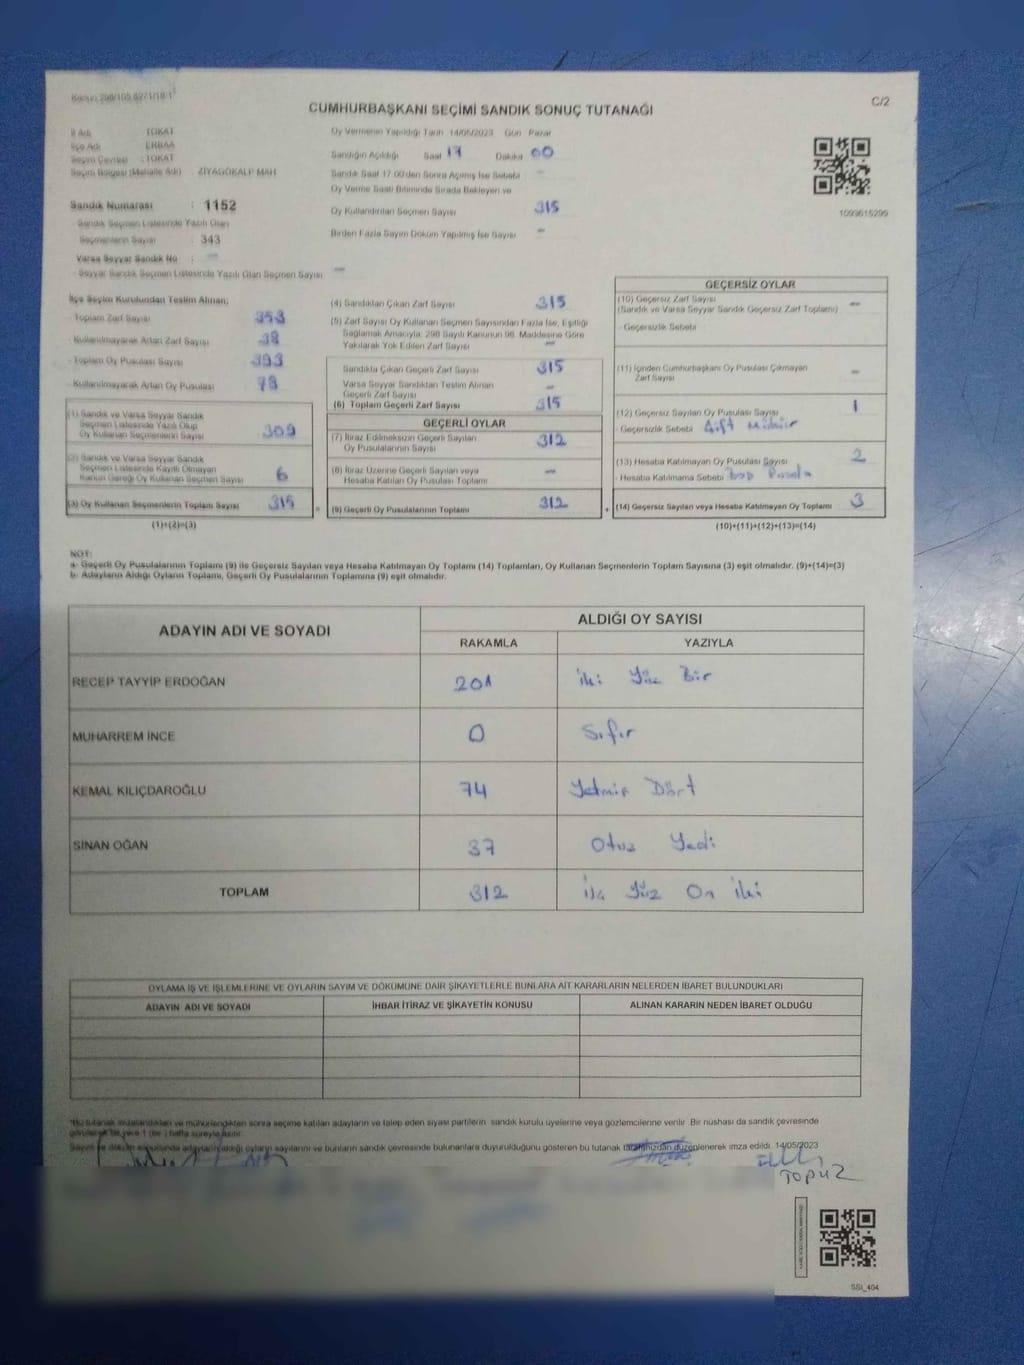 C/2
CUMHURBAŞKANI SEÇİMİ SANDIK SONUÇ TUTANAĞI
İl Adı : TOKAT
İlçe Adı : ERBAA
Seçim Çevresi : TOKAT
Seçim Bölgesi (Mahalle Adı) : ZİYAGÖKALP MAH
Sandık Numarası : 1152
Sandık Seçmen Listesinde Yazılı Olan
Seçmenlerin Sayısı : 343
Varsa Seyyar Sandık No : -
Seyyar Sandık Seçmen Listesinde Yazılı Olan Seçmen Sayısı -
Oy Vermenin Yapıldığı Tarih 14/05/2023 Gün Pazar
Sandığın Açıldığı Saat 17 Dakika 00
Sandık Saat 17.00'den Sonra Açılmış İse Sebebi -
Oy Verme Saati Bitiminde Sırada Bekleyen ve
Oy Kullandırılan Seçmen Sayısı 315
Birden Fazla Sayım Döküm Yapılmış İse Sayısı -
1093615299
İlçe Seçim Kurulundan Teslim Alınan;
Toplam Zarf Sayısı 353
Kullanılmayarak Artan Zarf Sayısı 38
Toplam Oy Pusulası Sayısı 393
Kullanılmayarak Artan Oy Pusulası 78
(1) Sandık ve Varsa Seyyar Sandık
Seçmen Listesinde Yazılı Olup
Oy Kullanan Seçmenlerin Sayısı 309
(2) Sandık ve Varsa Seyyar Sandık
Seçmen Listesinde Kayıtlı Olmayan
Kanun Gereği Oy Kullanan Seçmen Sayısı 6
(3) Oy Kullanan Seçmenlerin Toplam Sayısı 315
(1)+(2)=(3)
(4) Sandıktan Çıkan Zarf Sayısı 315
(5) Zarf Sayısı Oy Kullanan Seçmen Sayısından Fazla İse, Eşitliği
Sağlamak Amacıyla, 298 Sayılı Kanunun 98. Maddesine Göre
Yakılarak Yok Edilen Zarf Sayısı -
Sandıkta Çıkan Geçerli Zarf Sayısı 315
Varsa Seyyar Sandıktan Teslim Alınan
Geçerli Zarf Sayısı -
(6) Toplam Geçerli Zarf Sayısı 315
GEÇERLİ OYLAR
(7) İtiraz Edilmeksizin Geçerli Sayılan
Oy Pusulalarının Sayısı 312
(8) İtiraz Üzerine Geçerli Sayılan veya
Hesaba Katılan Oy Pusulası Toplamı -
(9) Geçerli Oy Pusulalarının Toplamı 312
GEÇERSİZ OYLAR
(10) Geçersiz Zarf Sayısı
(Sandık ve Varsa Seyyar Sandık Geçersiz Zarf Toplamı) -
- Geçersizlik Sebebi
(11) İçinden Cumhurbaşkanı Oy Pusulası Çıkmayan
Zarf Sayısı -
(12) Geçersiz Sayılan Oy Pusulası Sayısı 1
- Geçersizlik Sebebi Çift Mühür
(13) Hesaba Katılmayan Oy Pusulası Sayısı 2
- Hesaba Katılmama Sebebi Boş Pusula
(14) Geçersiz Sayılan veya Hesaba Katılmayan Oy Toplamı 3
(10)+(11)+(12)+(13)=(14)
NOT:
a- Geçerli Oy Pusulalarının Toplamı (9) ile Geçersiz Sayılan veya Hesaba Katılmayan Oy Toplamı (14) Toplamları, Oy Kullanan Seçmenlerin Toplam Sayısına (3) eşit olmalıdır. (9)+(14)=(3)
b- Adayların Aldığı Oyların Toplamı, Geçerli Oy Pusulalarının Toplamına (9) eşit olmalıdır.
ADAYIN ADI VE SOYADI ALDIĞI OY SAYISI
RAKAMLA YAZIYLA
RECEP TAYYİP ERDOĞAN 201 iki Yüz Bir
MUHARREM İNCE 0 Sıfır
KEMAL KILIÇDAROĞLU 74 Yetmiş Dört
SİNAN OĞAN 37 Otuz Yedi
TOPLAM 312 Üç Yüz On iki
OYLAMA İŞ VE İŞLEMLERİNE VE OYLARIN SAYIM VE DÖKÜMÜNE DAİR ŞİKAYETLERLE BUNLARA AİT KARARLARIN NELERDEN İBARET BULUNDUKLARI
ADAYIN ADI VE SOYADI İHBAR İTİRAZ VE ŞİKAYETİN KONUSU ALINAN KARARIN NEDEN İBARET OLDUĞU
*Bu tutanak imzalandıktan ve mühürlendikten sonra seçime katılan adayların ve talep eden siyasi partilerin sandık kurulu üyelerine veya gözlemcilerine verilir. Bir nüshası da sandık çevresinde
görülecek bir yere 1 (bir) hafta süreyle asılır.
Sayım ve döküm sonucunda adayların aldığı oyların sayılarını ve bunların sandık çevresinde bulunanlara duyurulduğunu gösteren bu tutanak tarafımızdan düzenlenerek imza edildi. 14/05/2023
TOPUZ
SSI_404